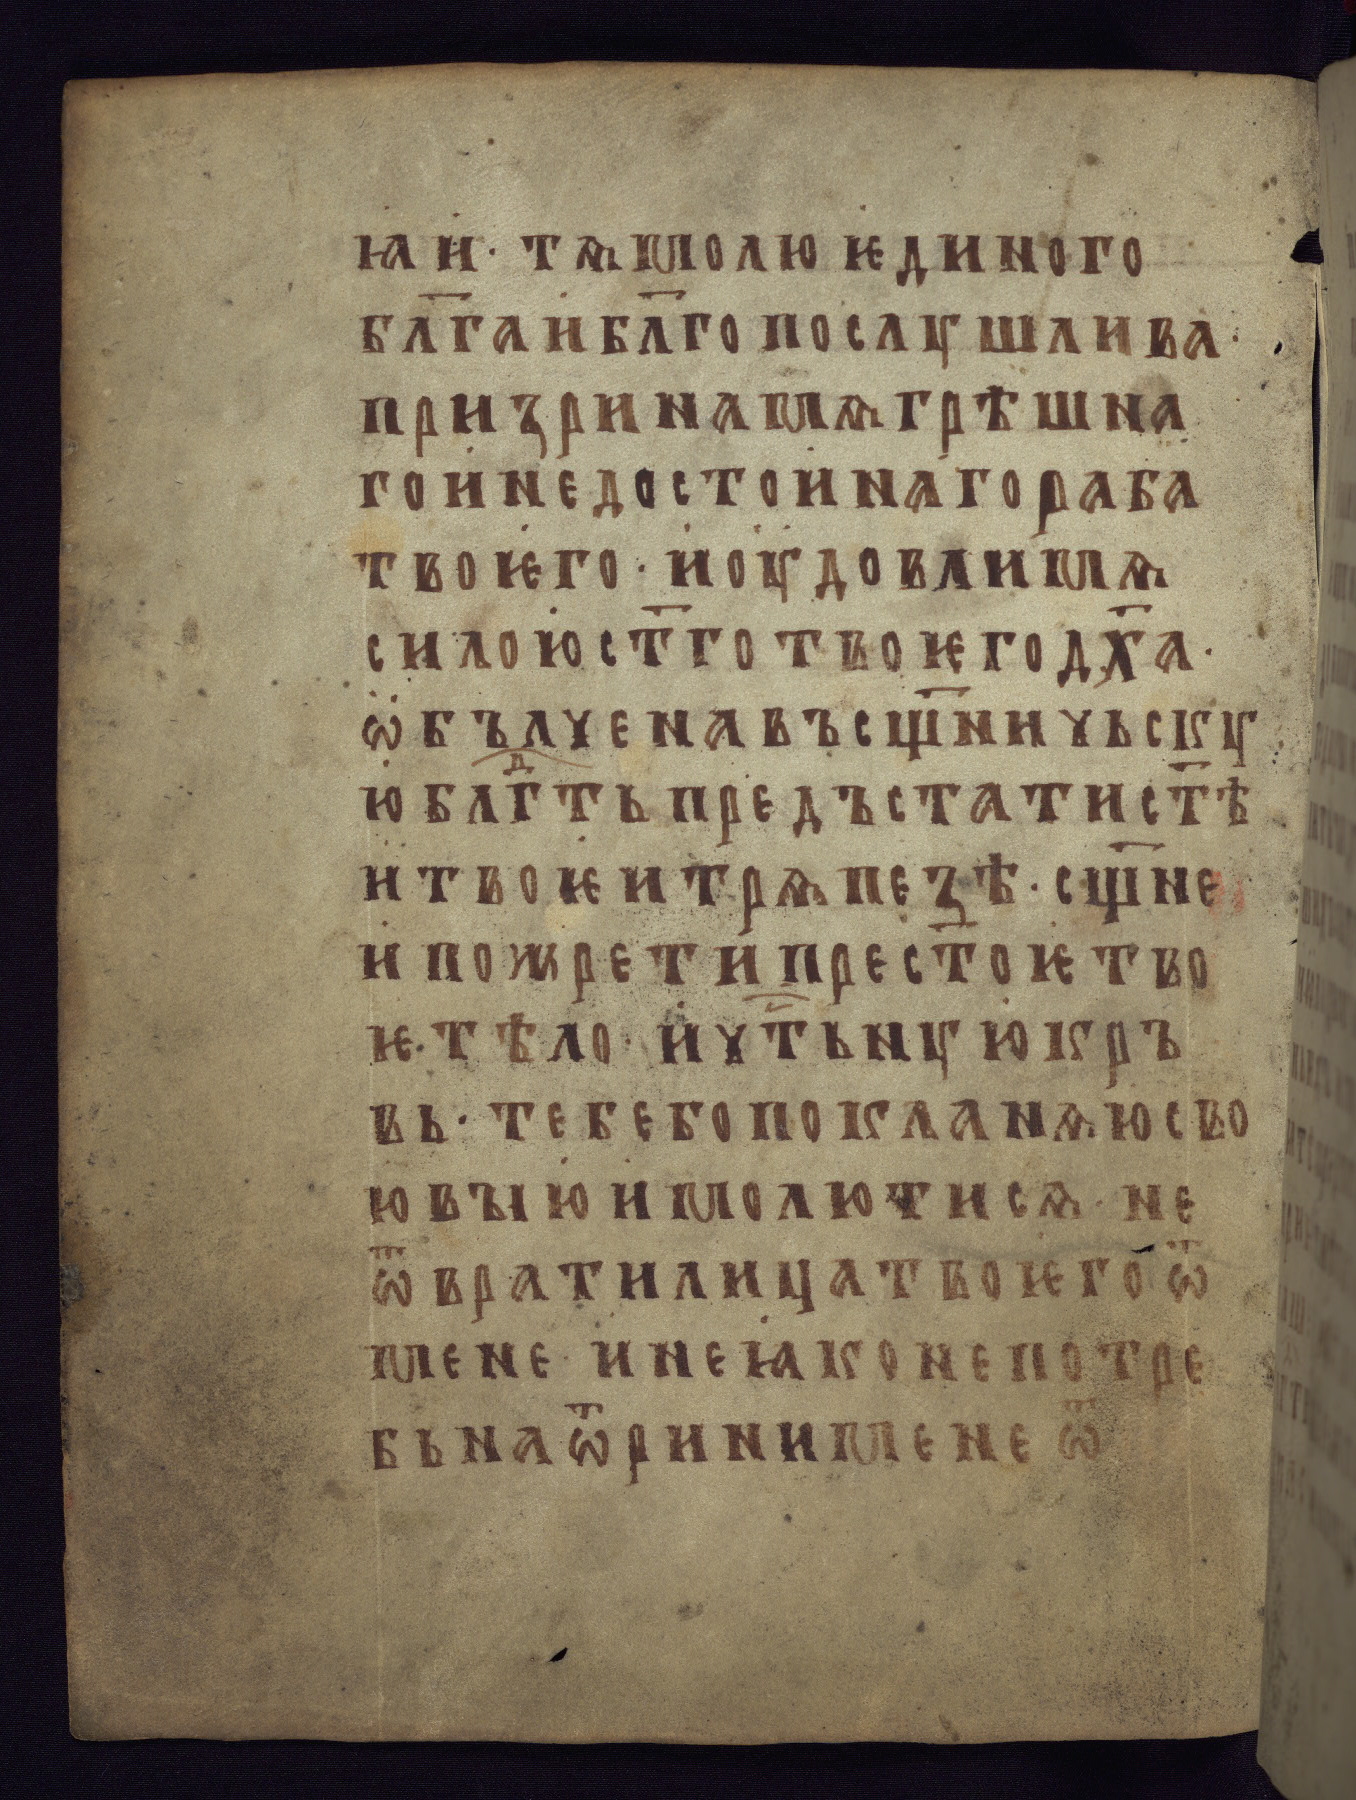 ꙗи· тѧ молю ѥдиного
бл҃га и бл҃гопослꙋшлива·
призри на мѧ грѣшна
го и недостоинаго раба
твоѥго· и оудовли мѧ
силою ст҃го твоѥго дх҃а·
ѡбълчена въ сщ҃ничьскꙋ
ю блгⷣть предъстати ст҃ѣ
и твоѥи трѧпезѣ· сщ҃не
и пожрети прест҃оѥ тво
ѥ· тѣло· и чⷭтьнꙋю кръ
вь· тебе бо покланѧю сво
ю выю и молю ти сѧ· не
ѿврати лица твоѥго ѿ
мене· и не ꙗко непотре
бьна ѿрини мене ѿ